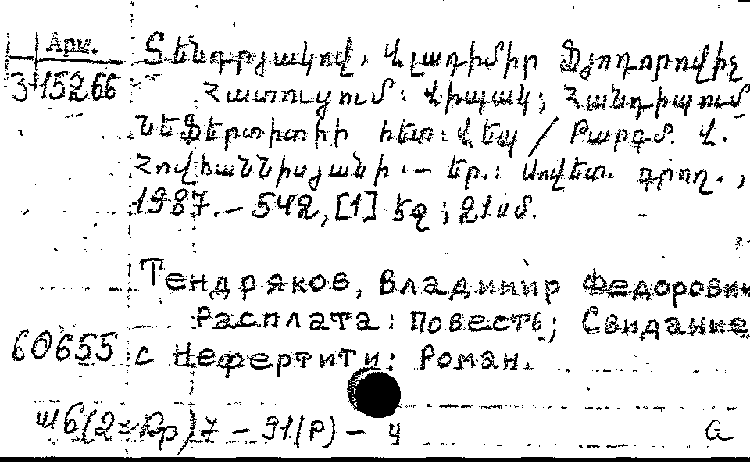 Арм.
Տենդրյակով, Վլադիմիր Ֆյոդորովիչ
3-15266
Հատուցում: Վիպակ; Հանդիպում
Նեֆերտիտիի հետ: Վեպ / Թարգմ. Վ.
Հովհաննիսյանի.— Եր.: Սովետ. գրող.,
1987.— 542, [1] էջ; 21սմ.
Тендряков, Владимир Федорович
Расплата: Повесть; Свидание
60655 с Нефертити: Роман.
а